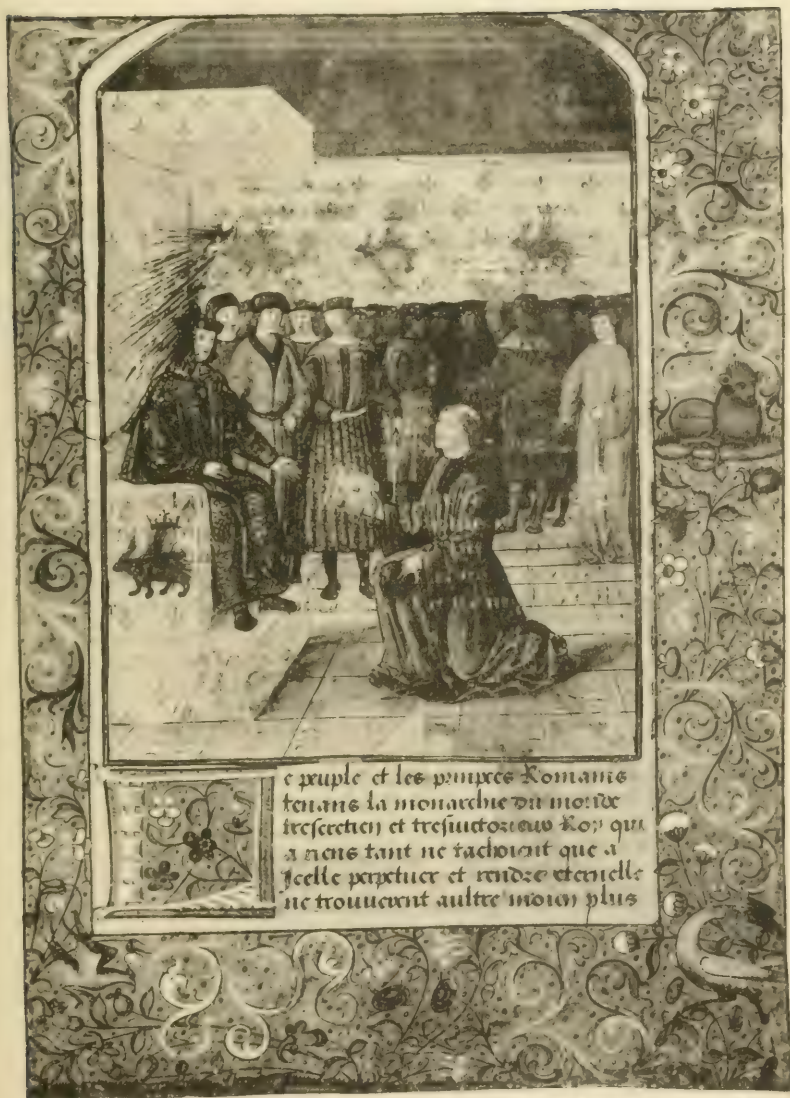 e peuple et les princes Romains
tenans la monarchie du monde
trescretien et tresvictorieux Roy qui
a riens tant ne tachoient que a
Icelle perpetuer et rendre eternelle
ne trouverent aultre moien plus